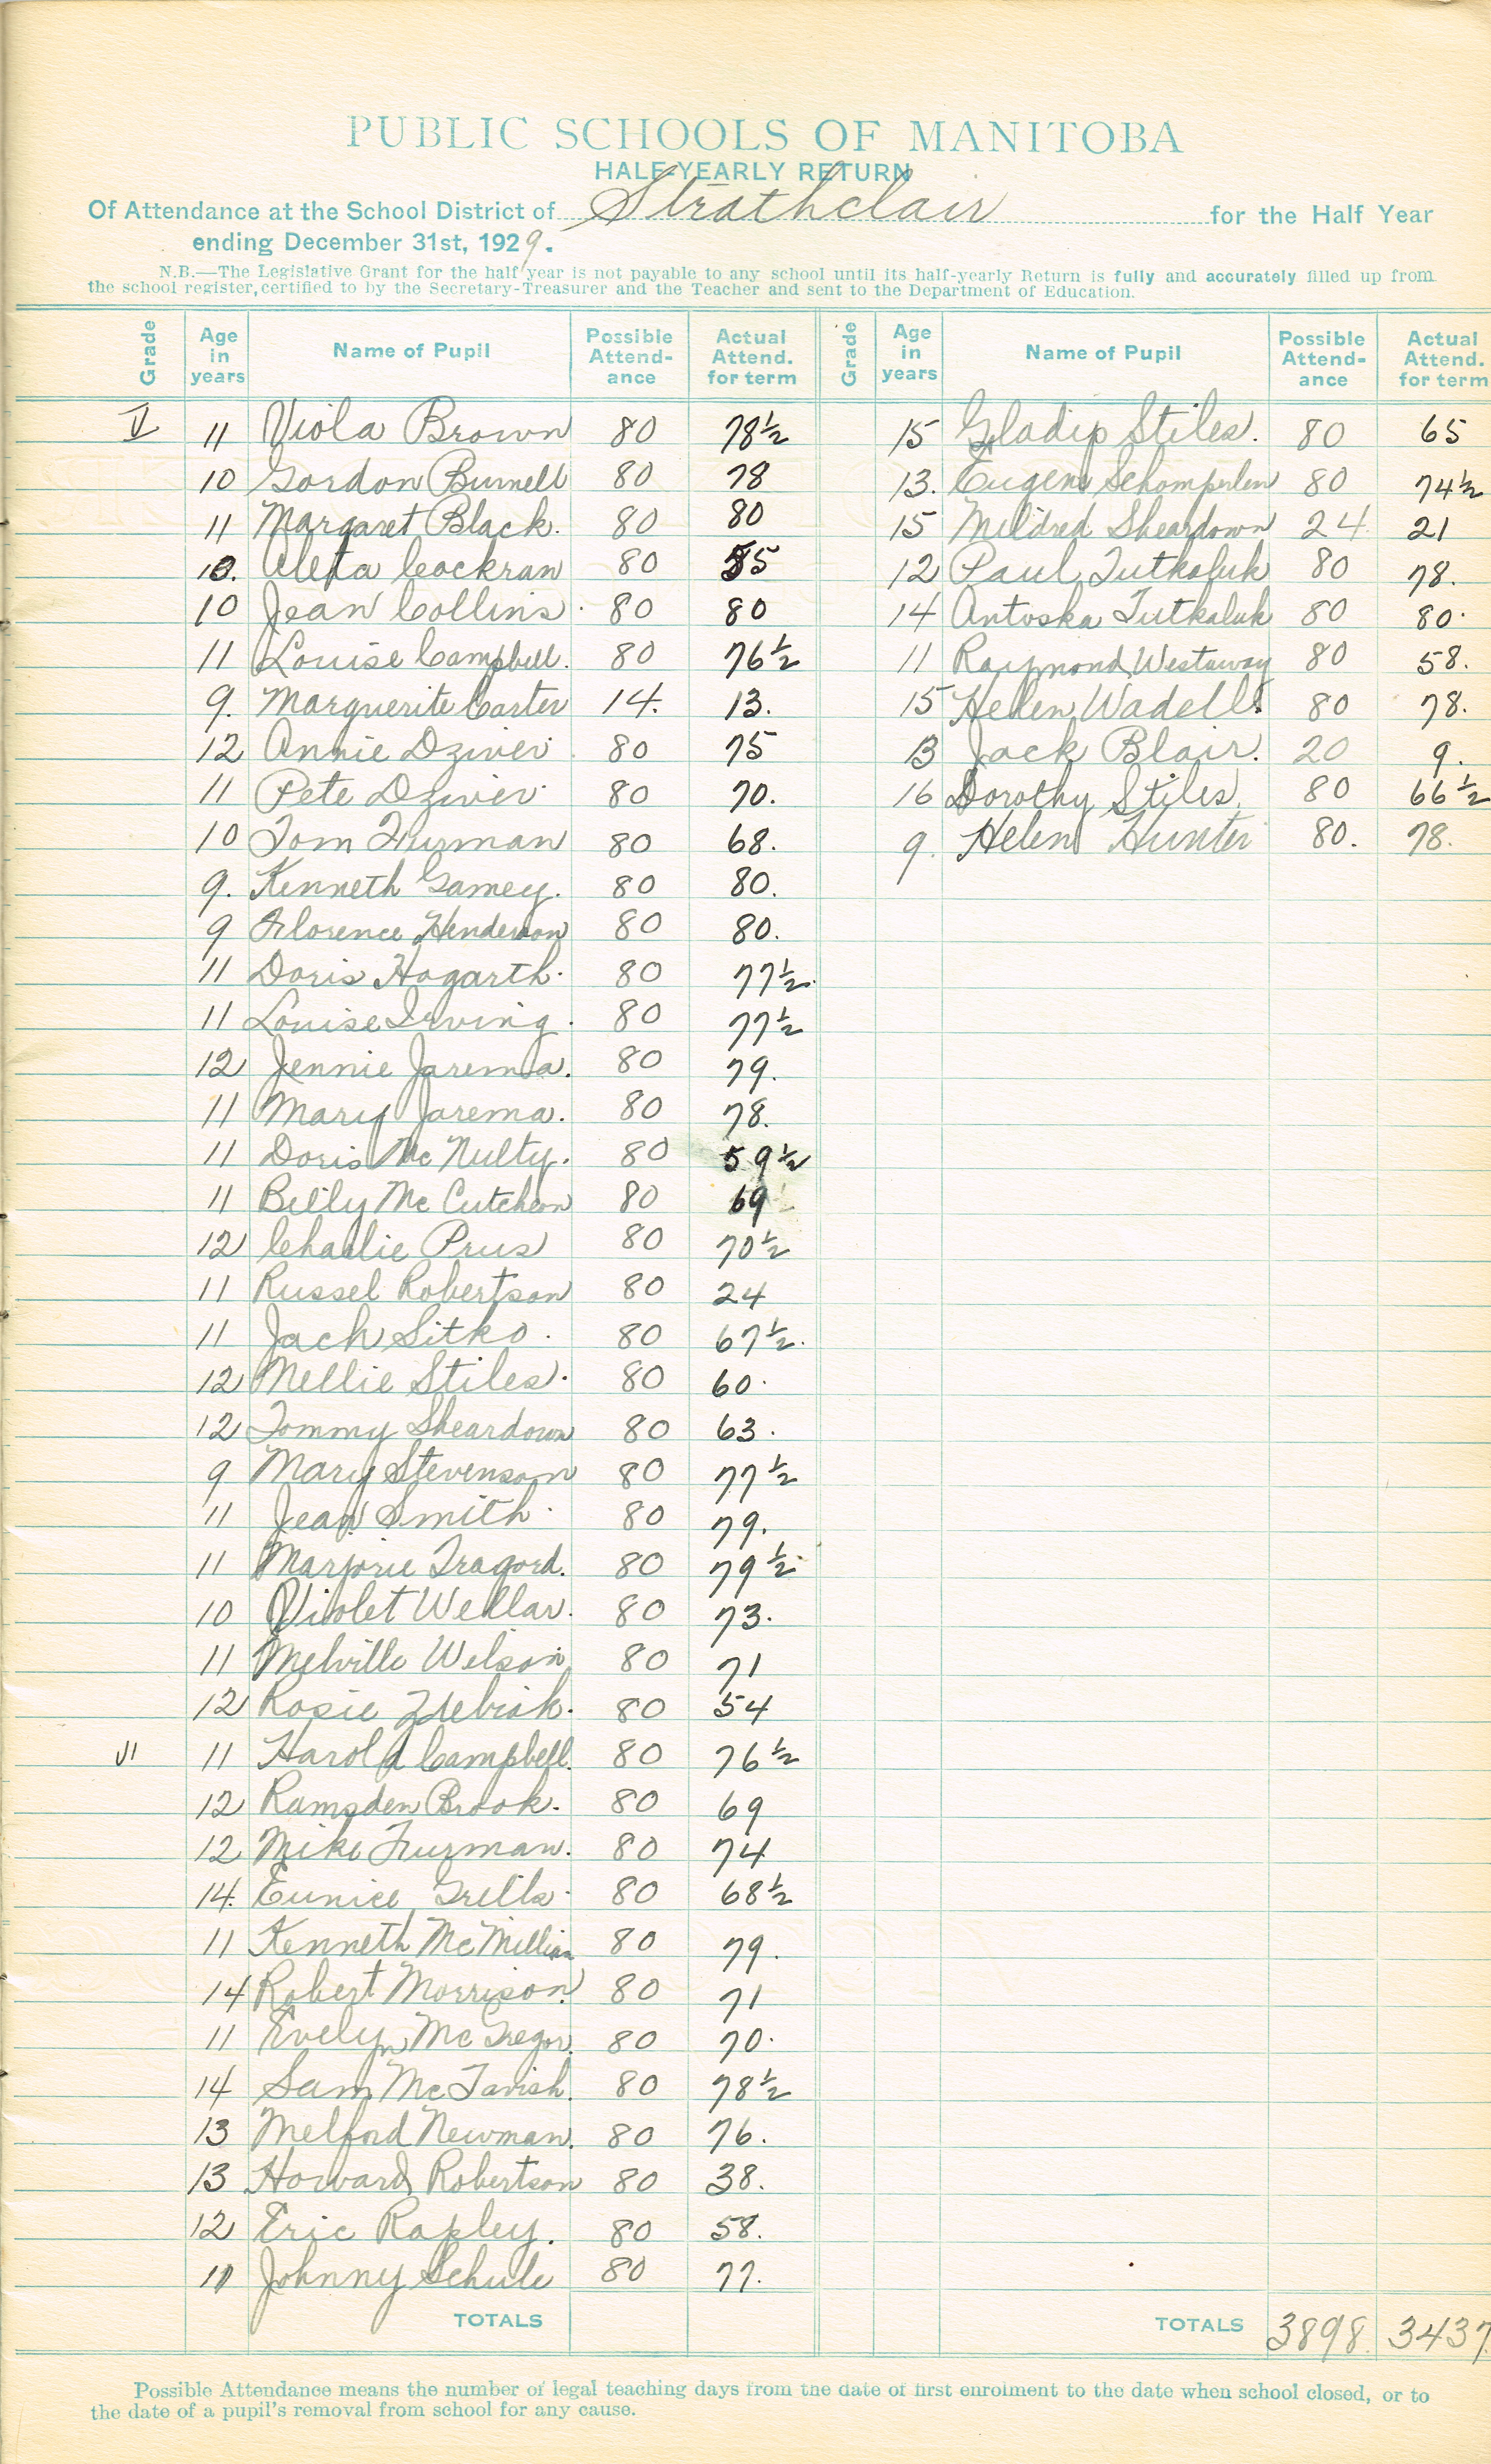 PUBLIC SCHOOLS OF MANITOBA
HALF-YEARLY RETURN
Of Attendance at the School District of Strathclair for the Half Year
ending December 31st, 1929.
N.B.—The Legislative Grant for the half year is not payable to any school until its half-yearly Return is fully and accurately filled up from
the school register, certified to by the Secretary-Treasurer and the Teacher and sent to the Department of Education.
Grade Age in years Name of Pupil Possible Attend-ance Actual Attend. for term Grade Age in years Name of Pupil Possible Attend-ance Actual Attend. for term
V 11 Viola Brown 80 78½
10 Gordon Burnell 80 78
11 Margaret Black. 80 80
10. Aleta Cockran 80 55
10 Jean Collins. 80 80
11 Louise Campbell. 80 76½
9. Marguerite Carter 14. 13.
12 Annie Dziver 80 75
11 Pete Dziver 80 70.
10 Tom Furman 80 68.
9. Kenneth Gamey. 80 80.
9 Florence Henderson 80 80.
11 Doris Hogarth. 80 77½.
11 Louise Irving. 80 77½
12 Jennie Jarema. 80 79.
11 Mary Jarema. 80 78.
11 Doris McNulty. 80 59½
11 Billy McCutcheon 80 69
12 Charlie Prus 80 70½
11 Russel Robertson 80 24
11 Jack Sitko. 80 67½.
12 Nellie Stiles. 80 60.
12 Tommy Sheardown 80 63.
9 Mary Stevenson 80 77½
11 Jean Smith. 80 79.
11 Marjorie Tragord. 80 79½.
10 Violet Wellar. 80 73.
11 Melville Wilson 80 71
12 Rosie Zdebiak. 80 54
VI 11 Harold Campbell. 80 76½
12 Ramsden Brook. 80 69
12 Mike Furman. 80 74
14. Eunice Grills. 80 68½
11 Kenneth McMillian 80 79.
14 Robert Morrison. 80 71
11 Evelyn McGregor. 80 70.
14 Sam McTavish. 80 78½
13 Melford Newman. 80 76.
13 Howard Robertson 80 38.
12 Eric Rapley. 80 58.
11 Johnny Schule 80 77.
TOTALS
15 Gladys Stiles. 80 65
13. Eugene Schomperlen 80 74½
15 Mildred Sheardown 24 21
12 Paul Tutkaluk 80 78.
14 Antoska Tutkaluk 80 80.
11 Raymond Westaway 80 58.
15 Helen Wadell. 80 78.
13 Jack Blair. 20 9.
16 Dorothy Stiles. 80 66½
9. Helen Hunter 80. 78.
TOTALS 3898. 3437.
Possible Attendance means the number of legal teaching days from the date of first enrolment to the date when school closed, or to
the date of a pupil's removal from school for any cause.